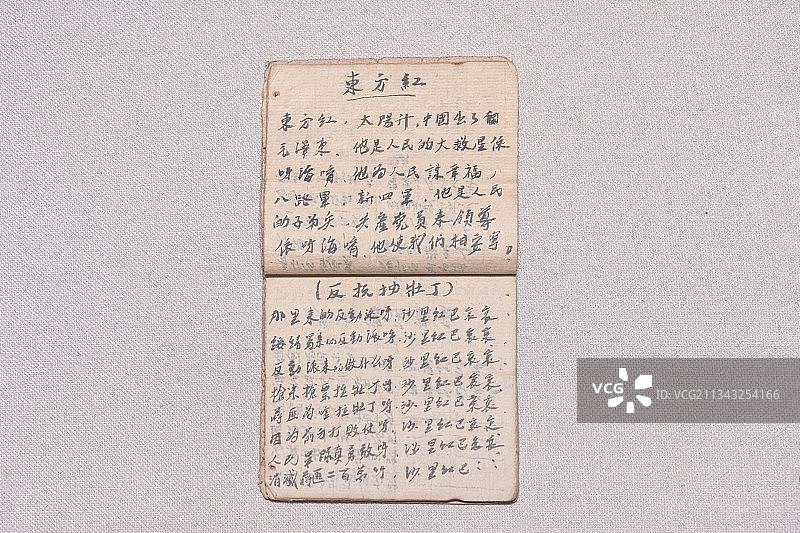 東方紅
東方紅,太陽升,中國出了個
毛澤東、他是人民的大救星依
呀海唷、他为人民謀幸福,
八路軍、新四軍、他是人民
的子弟兵、共產党員来領導
依呀海唷、他使我們相安寧。
(反抗抽壯丁)
那里来的反動派呀、沙里紅巴哀哀、
来的反動派呀、沙里紅巴哀哀、
反動派来的做什么呀、沙里紅巴哀哀、
搶米搶票拉壯丁呀、沙里紅巴哀哀、
蔣匪为啥拉壯丁呀、沙里紅巴哀哀、
因为前方打败仗呀、沙里紅巴哀哀、
人民軍隊真勇敢呀、沙里紅巴哀哀、
消滅蔣匪二百萬呀、沙里紅巴::
VCG
VCG211343254166